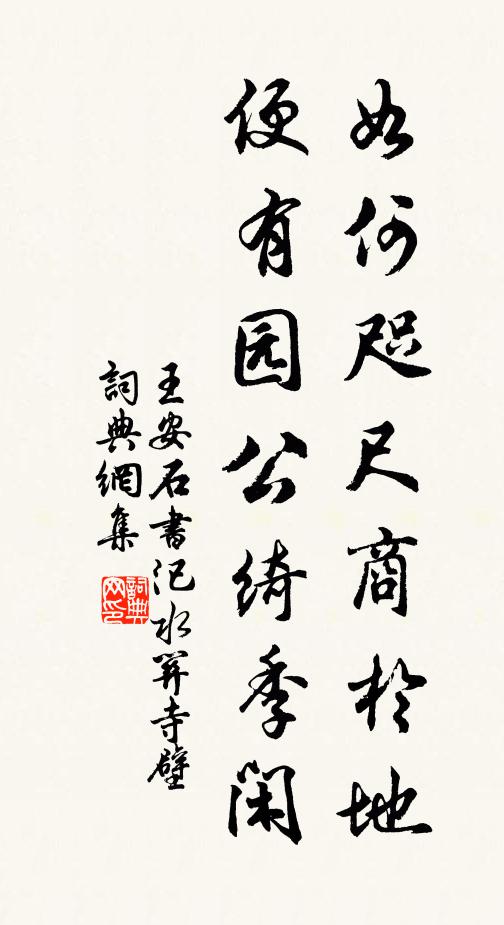 如何咫尺商於地
便有园公綺季閑
王安石書汜水関寺壁
詞典網集
詞典网印